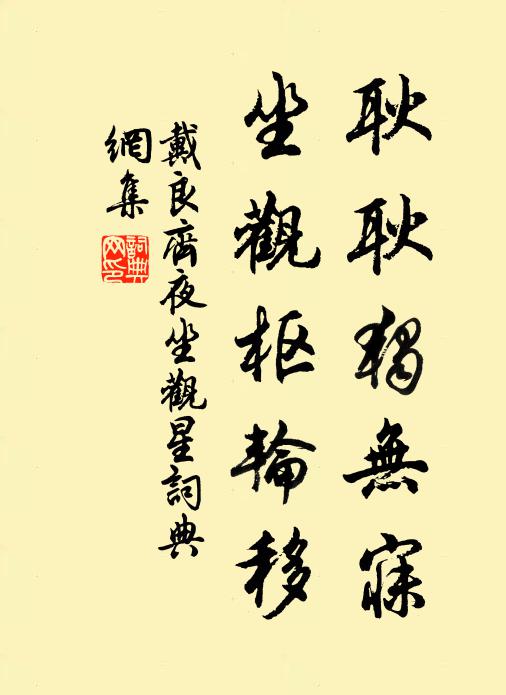 耿耿獨無寐
坐觀枢輪移
戴良齊夜坐觀星詞典
網集
詞典
网印